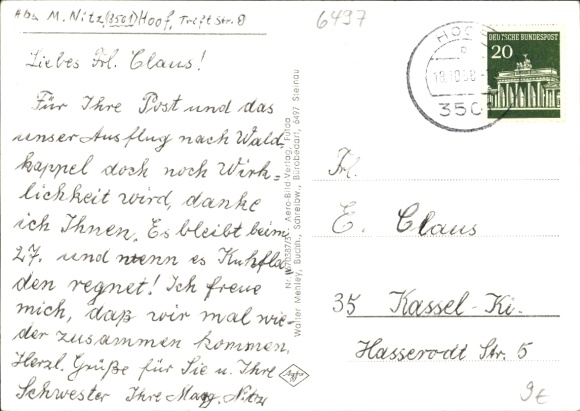 Abs. M. Nitz, (3501) Hoof, Treft Str. 8
6497
Liebes Frl. Claus!
Für Ihre Post und das
unser Ausflug nach Wald-
kappel doch noch Wirk=
lichkeit wird, danke
ich Ihnen. Es bleibt beim
27. und wenn es Kuhfla
den regnet! Ich freue
mich, daß wir mal wie-
der zusammen kommen.
Herzl. Grüße für Sie u. Ihre
Schwester Ihre Marg. Nitz
Aero-Bild-Verlag, Fulda
Walter Menley, Buchh., Schreibw., Bürobedarf, 6497 Steinau
Agfa
HOOF
350
DEUTSCHE BUNDESPOST
20
Frl.
E. Claus
35 Kassel-Ki.
Hasserodt Str. 5
9€